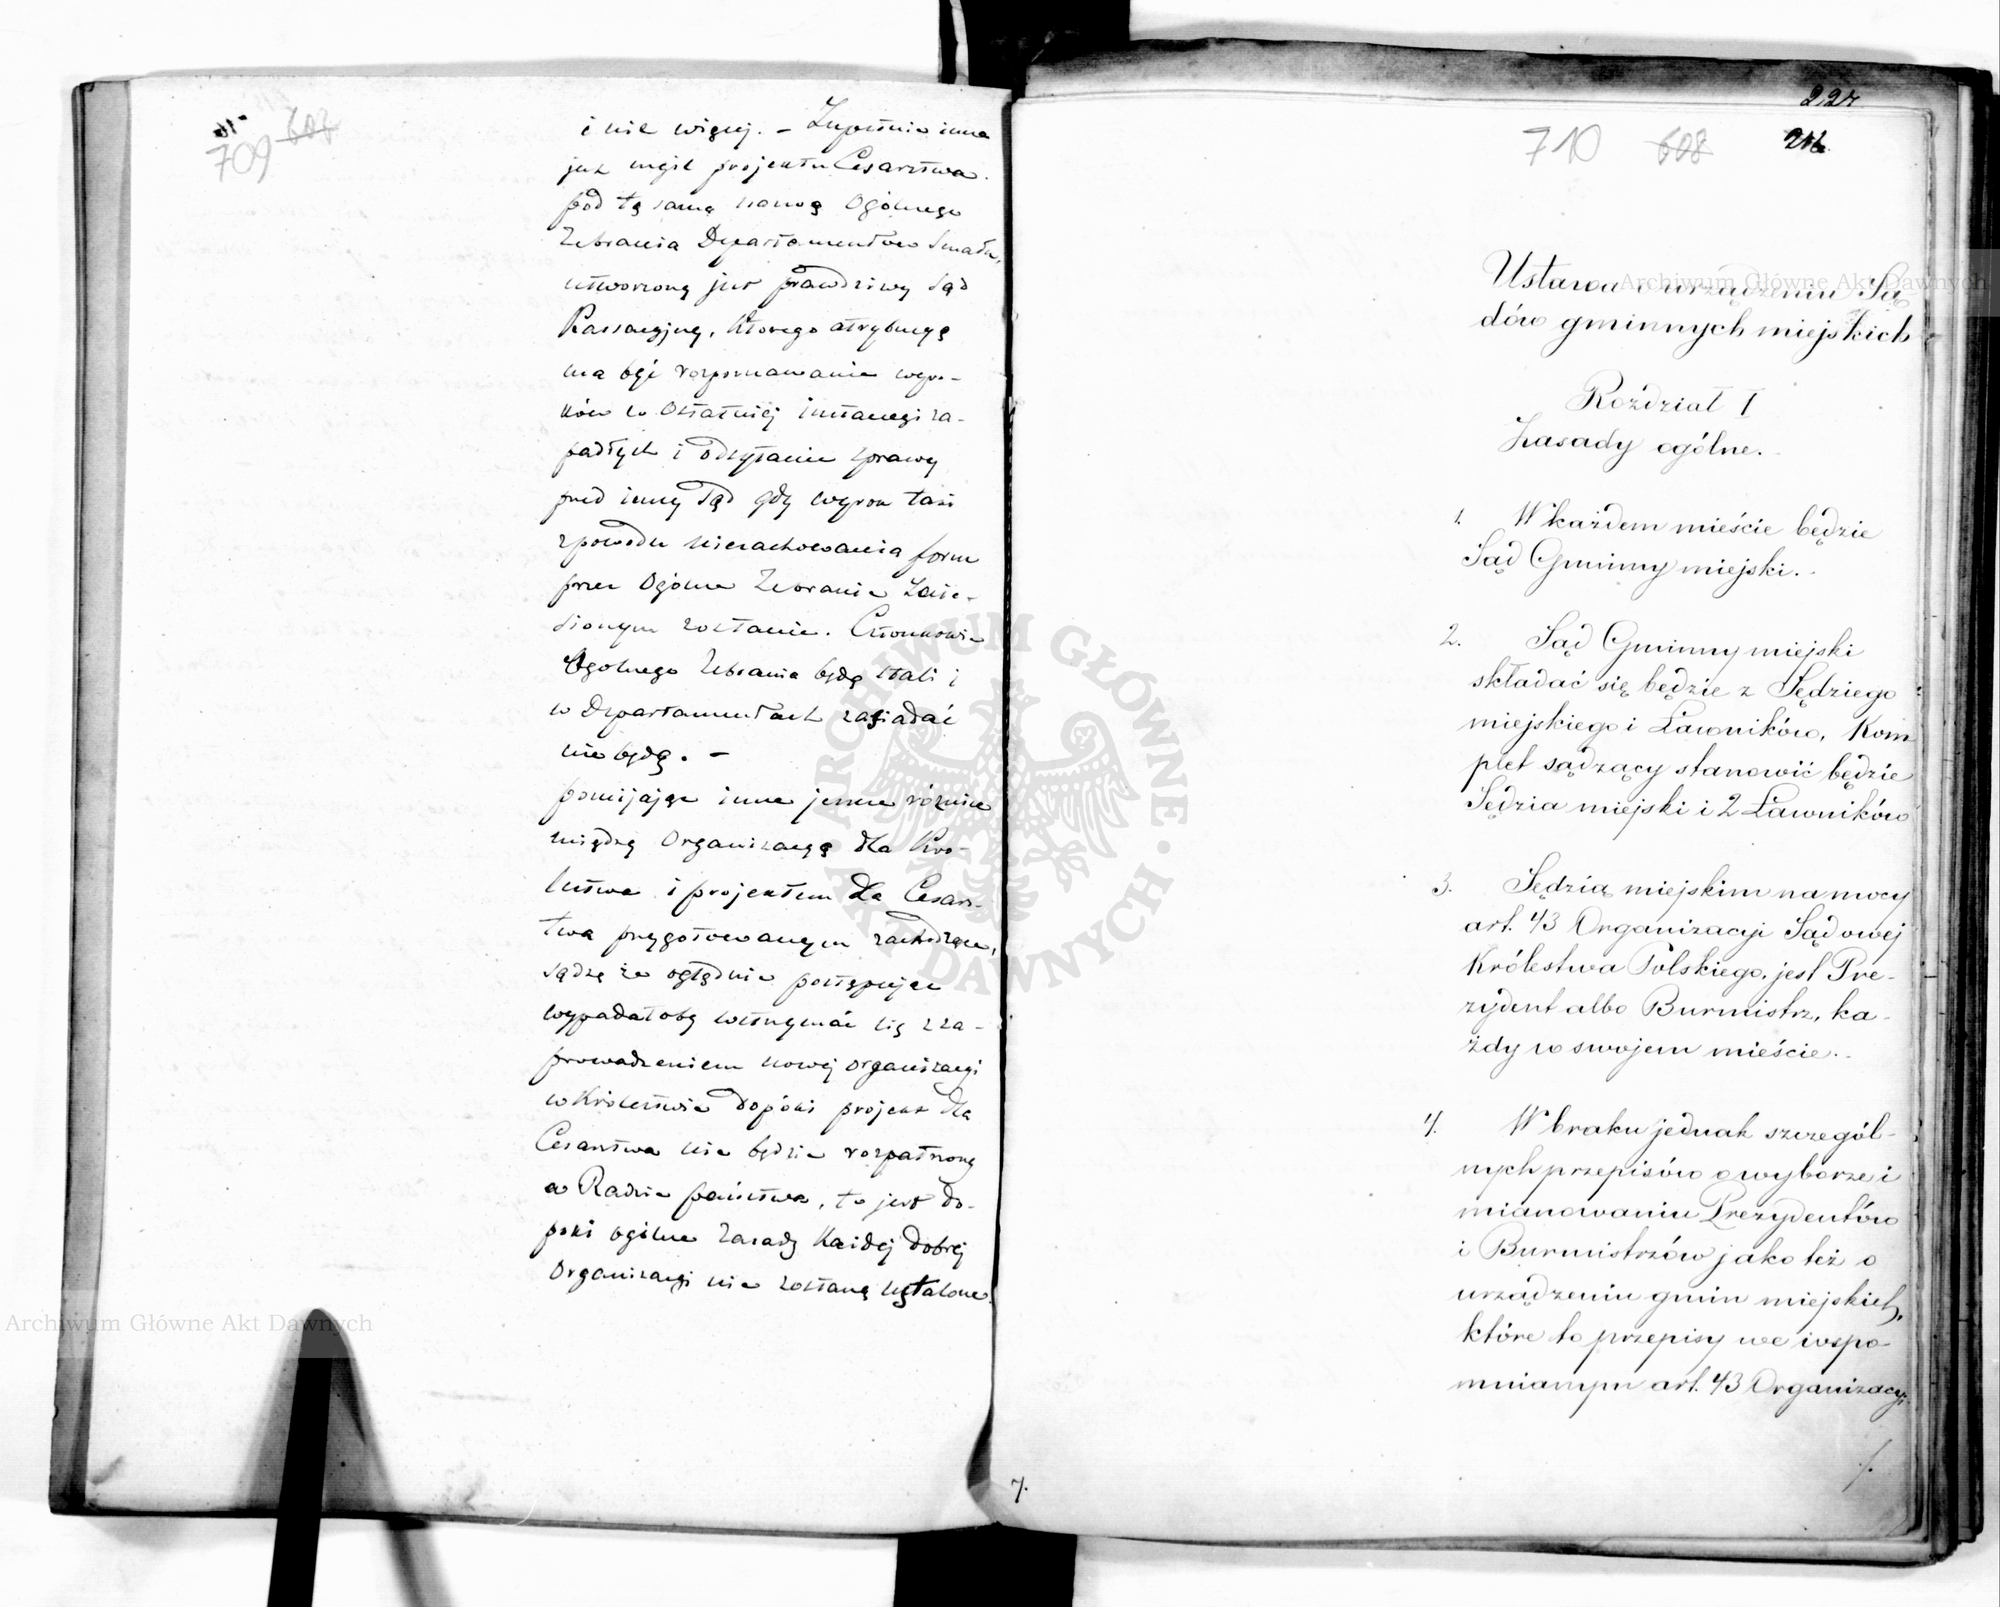 709 608
i nie więcej. – Zupełnie inna
już myśl projektu Cesarstwa.
pod tą samą nazwą Ogólnego
Zebrania Departamentów Senatu,
utworzony jest prawdziwy Sąd
Kassacyjny, którego atrybucyą
ma być rozpoznawanie wyro-
ków w ostatniej instancyi za-
padłych i odsyłanie sprawy
przed inny Sąd gdy wyrok taki
z powodu niezachowania form
przez Ogólne Zebranie
zostanie. Członkowie
Ogolnego Zebrania będą stali i
w Departamentach zasiadać
nie będą. –
pomijając inne jeszcze różnice
między Organizacyą dla Kró-
lestwa i projektem dla Cesars-
twa przygotowanym zachodzące,
sądzę że oględnie postępując
wypadałoby wstrzymać się z za-
prowadzeniem nowej organizacyi
w Królestwie dopóki projekt dla
Cesarstwa nie będzie rozpatrzony
w Radzie państwa, to jest do-
póki ogólne zasady każdej dobrej
Organizacyi nie zostaną ustalone.
227
710 608 216
Ustawa o urządzeniu Są
dów gminnych miejskich
Rozdział I
Zasady ogólne.
1. W każdem mieście będzie
Sąd Gminny miejski.
2. Sąd Gminny miejski
składać się będzie z Sędziego
miejskiego i Ławników, Kom
plet sądzący stanowić będzie
Sędzia miejski i 2 Ławników
3. Sędzią miejskim na mocy
art. 43 Organizacyi Sądowej
Królestwa Polskiego, jest Pre-
zydent albo Burmistrz, ka-
żdy w swojem mieście.
4. W braku jednak szczegól-
nych przepisów o wyborze i
mianowaniu Prezydentów
i Burmistrzów jako też o
urządzeniu gmin miejskich,
które to przepisy we wspo
mnianym art. 43 Organizacyi
7.
Archiwum Główne Akt Dawnych
Archiwum Główne Akt Dawnych
ARCHIWUM GŁÓWNE AKT DAWNYCH